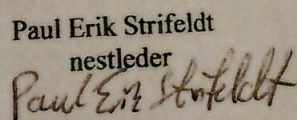 Paul Erik Strifeldt
nestleder
Paul Erik Strifeldt